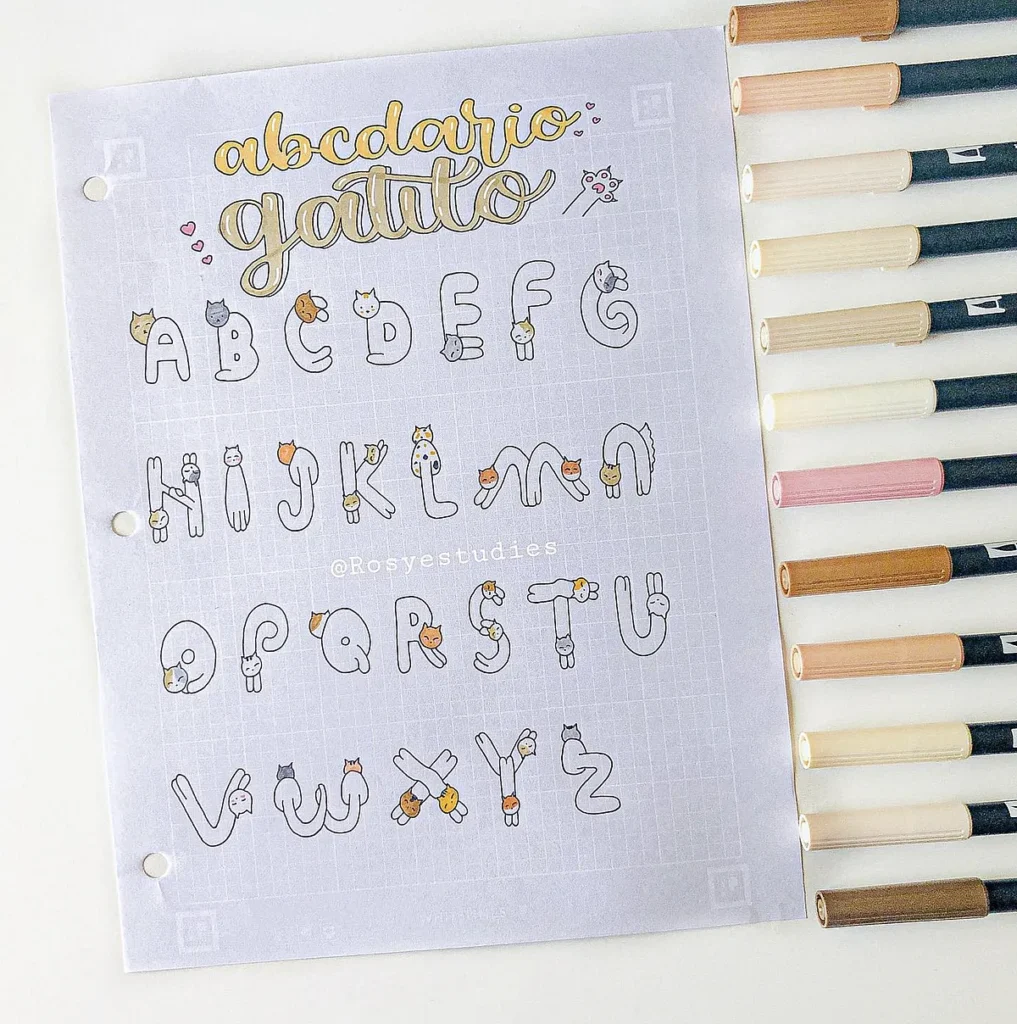 abcdario
gatito
A B C D E F G
H I J K L m n
@Rosyestudies
O P Q R S T U
V W X Y Z